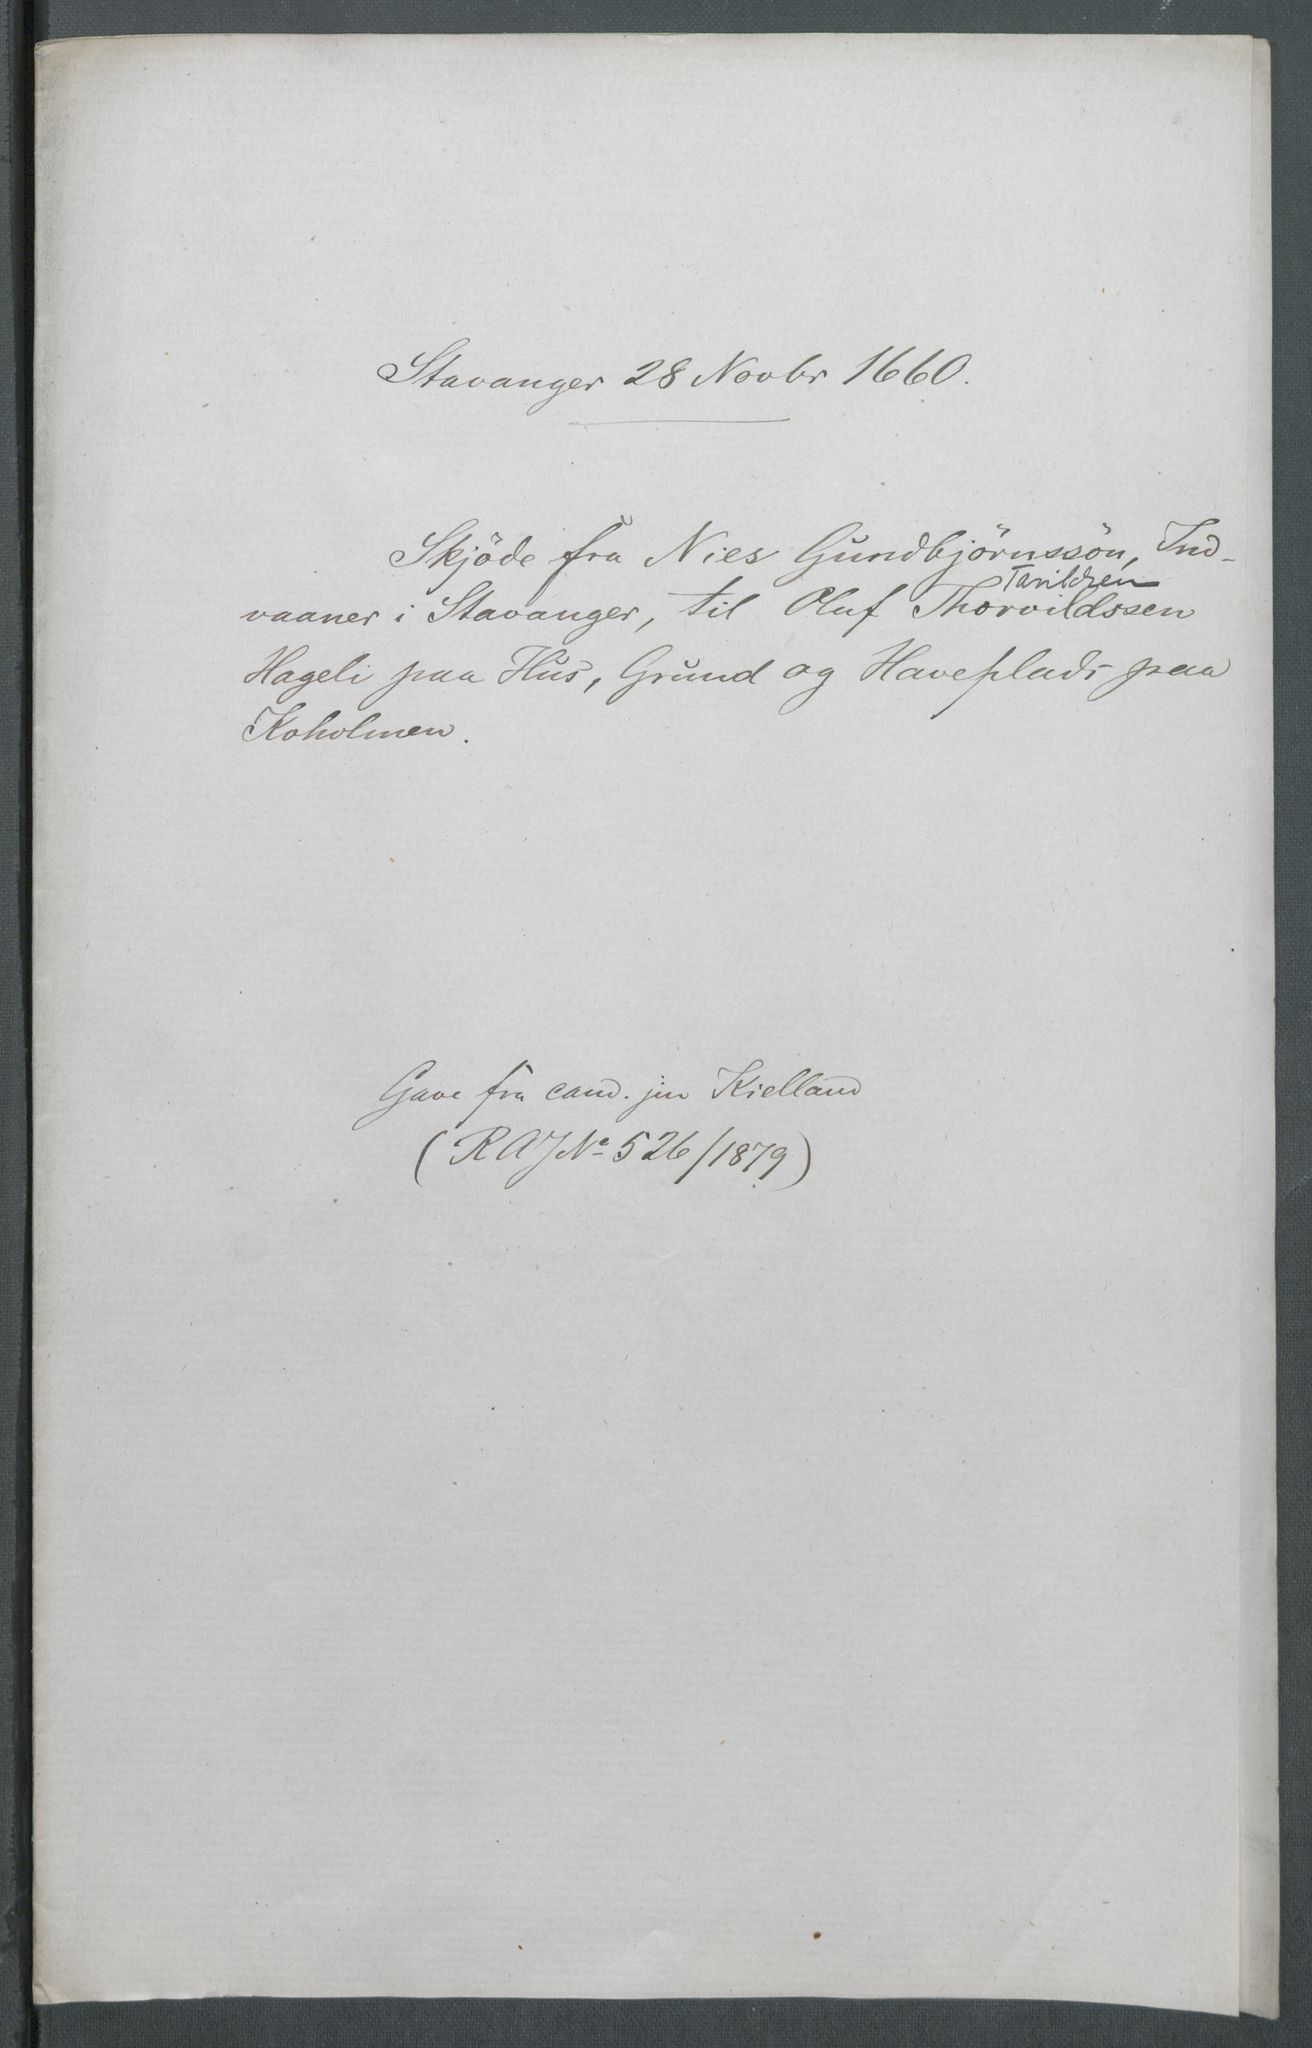 Stavanger 28 Novbr 1660.
Skjöde fra Nies Gundbjörnssön, Ind-
Tarildzen
vaaner i Stavanger, til Oluf Thorvildssen
Hageli paa Hus, Grund og Haveplads paa
Koholmen.
Gave fra cand. jur Kielland
(RAJNo 526/1879)